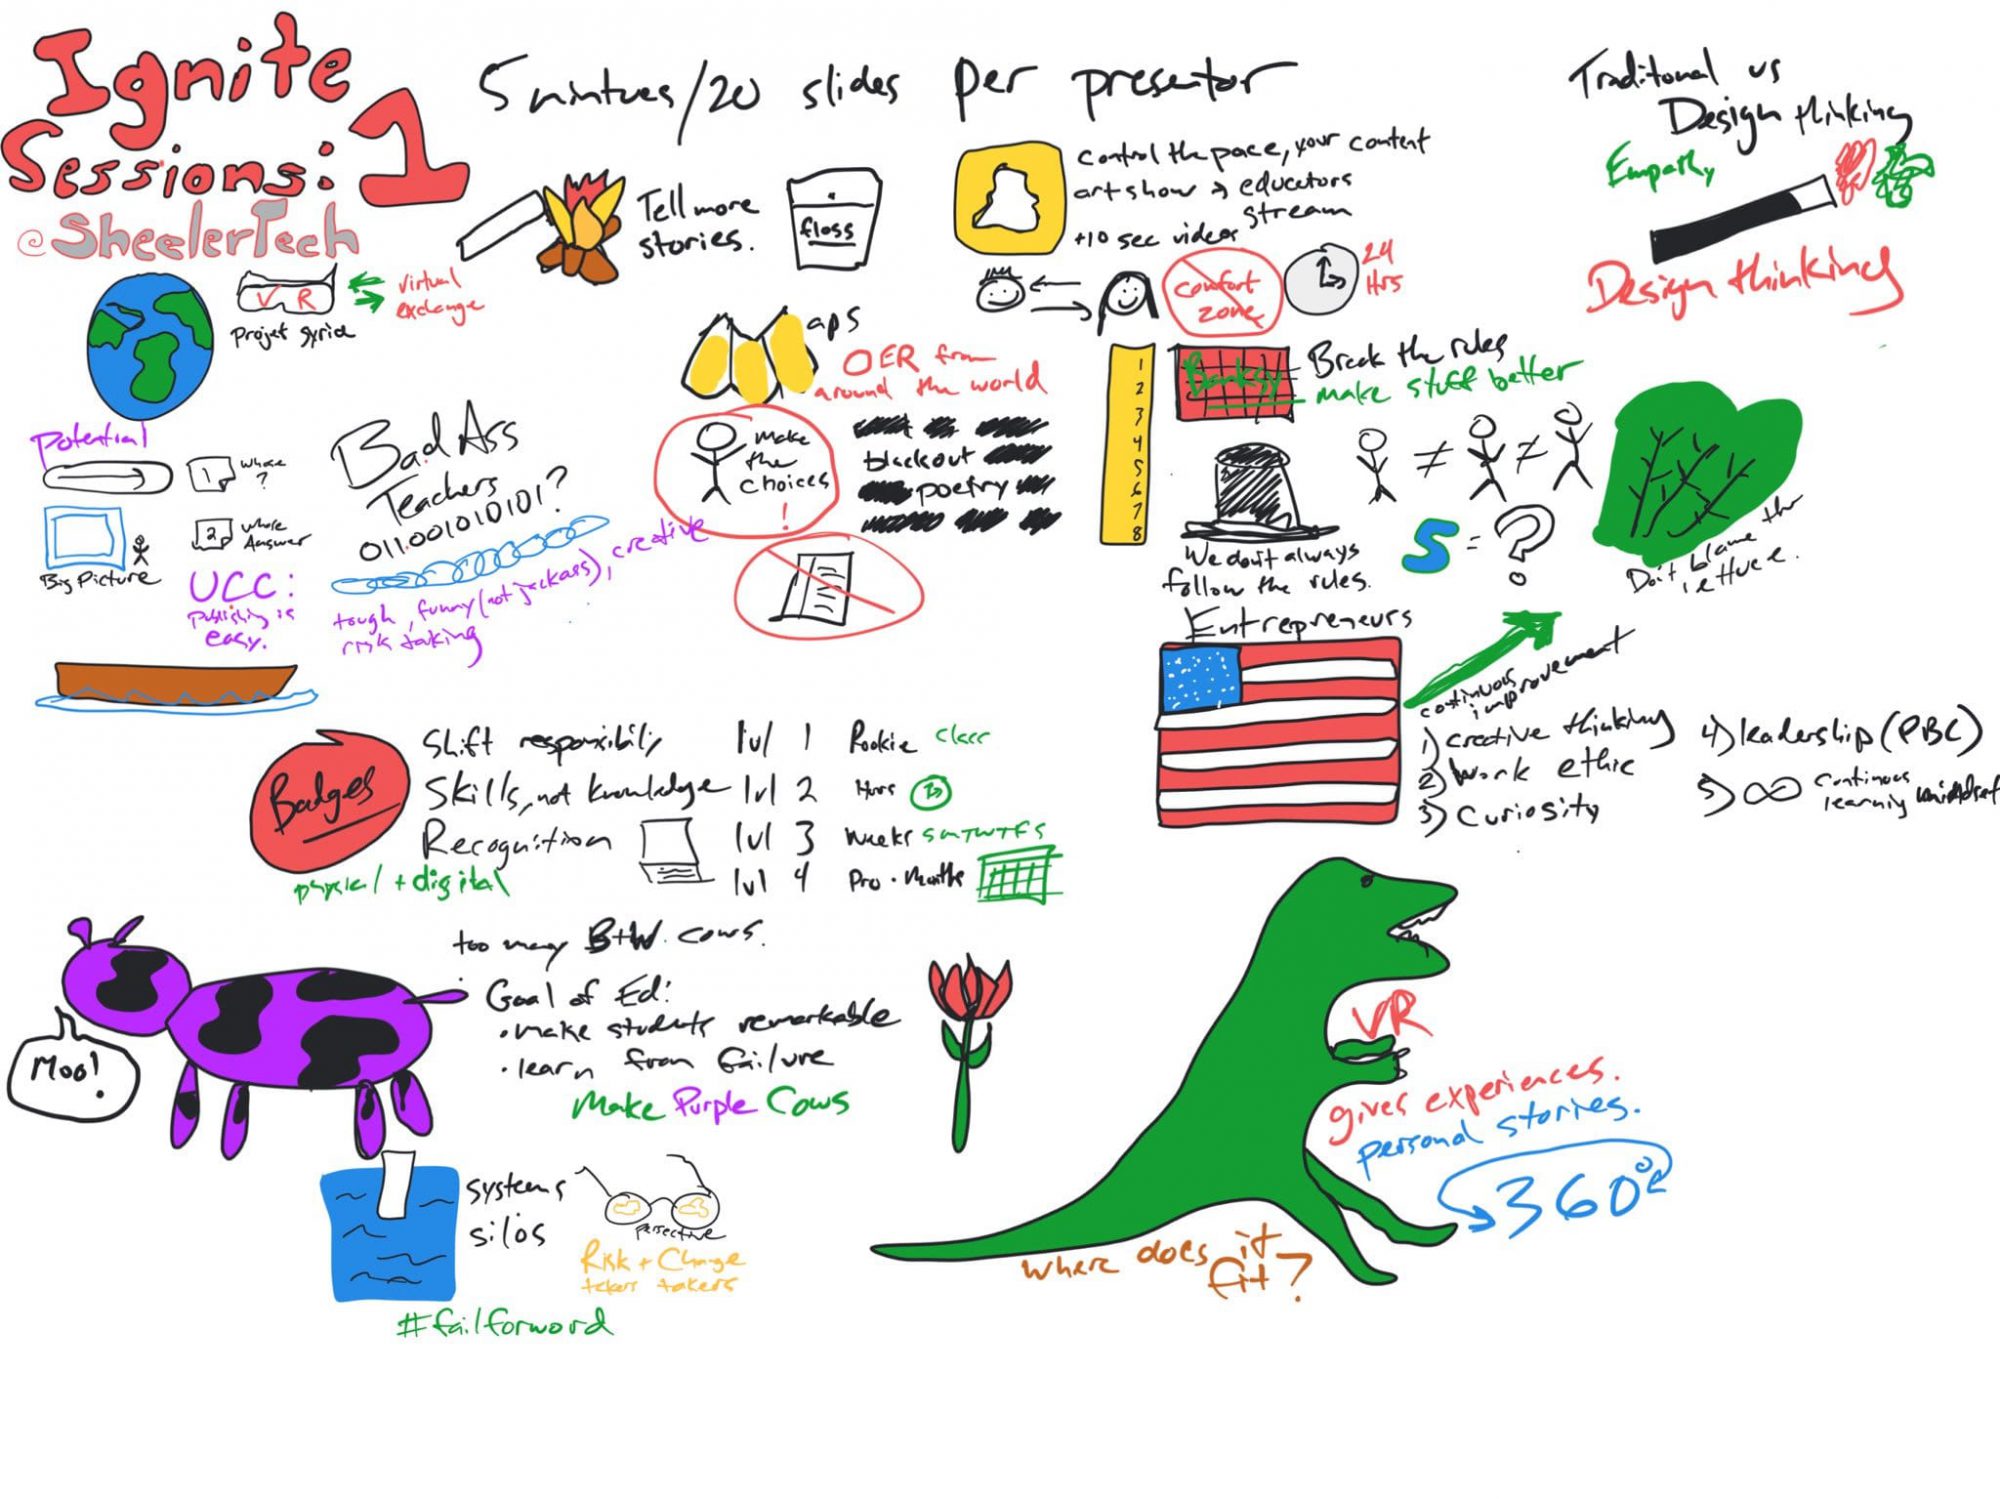 Ignite
Sessions: 1
@SheelerTech
5 mintues/20 slides per presentor
Tell more
stories.
floss
control the pace, your content
art show → educators
stream
+10 sec videos
comfort
zone
24
Hrs
Traditional vs
Design thinking
Empathy
Design thinking
VR
virtual
exchange
Projet Syria
aps
OER from
around the world
1
2
3
4
5
6
7
8
Banksy
Break the rules
make stuff better
Potential
1
whose
?
2
whose
Answer
Big Picture
UCC:
Publishing is
easy.
Bad Ass
Teachers
01100101010101?
tough, funny (not jackass), creative
risk taking
Make
the
choices
!
blackout
poetry
We don't always
follow the rules.
≠ ≠
S = ?
Don't blame the
lettuce.
Entrepreneurs
continuous
improvement
1) creative thinking
2) work ethic
3) curiosity
4) leadership (PBC)
5) ∞ continous
learning mindset
Badges
physical + digital
Shift responsibility
Skills, not knowledge
Recognition
lvl 1 Rookie class
lvl 2 Hours
lvl 3 Weeks SMTWTFS
lvl 4 Pro. Months
Moo!
too many B+W cows.
Goal of Ed:
• make students remarkable
• learn from failure
Make Purple Cows
systems
silos
Persective
Risk + Change
takers takers
#failforword
VR
gives experiences.
personal stories.
360°
where does it
fit?